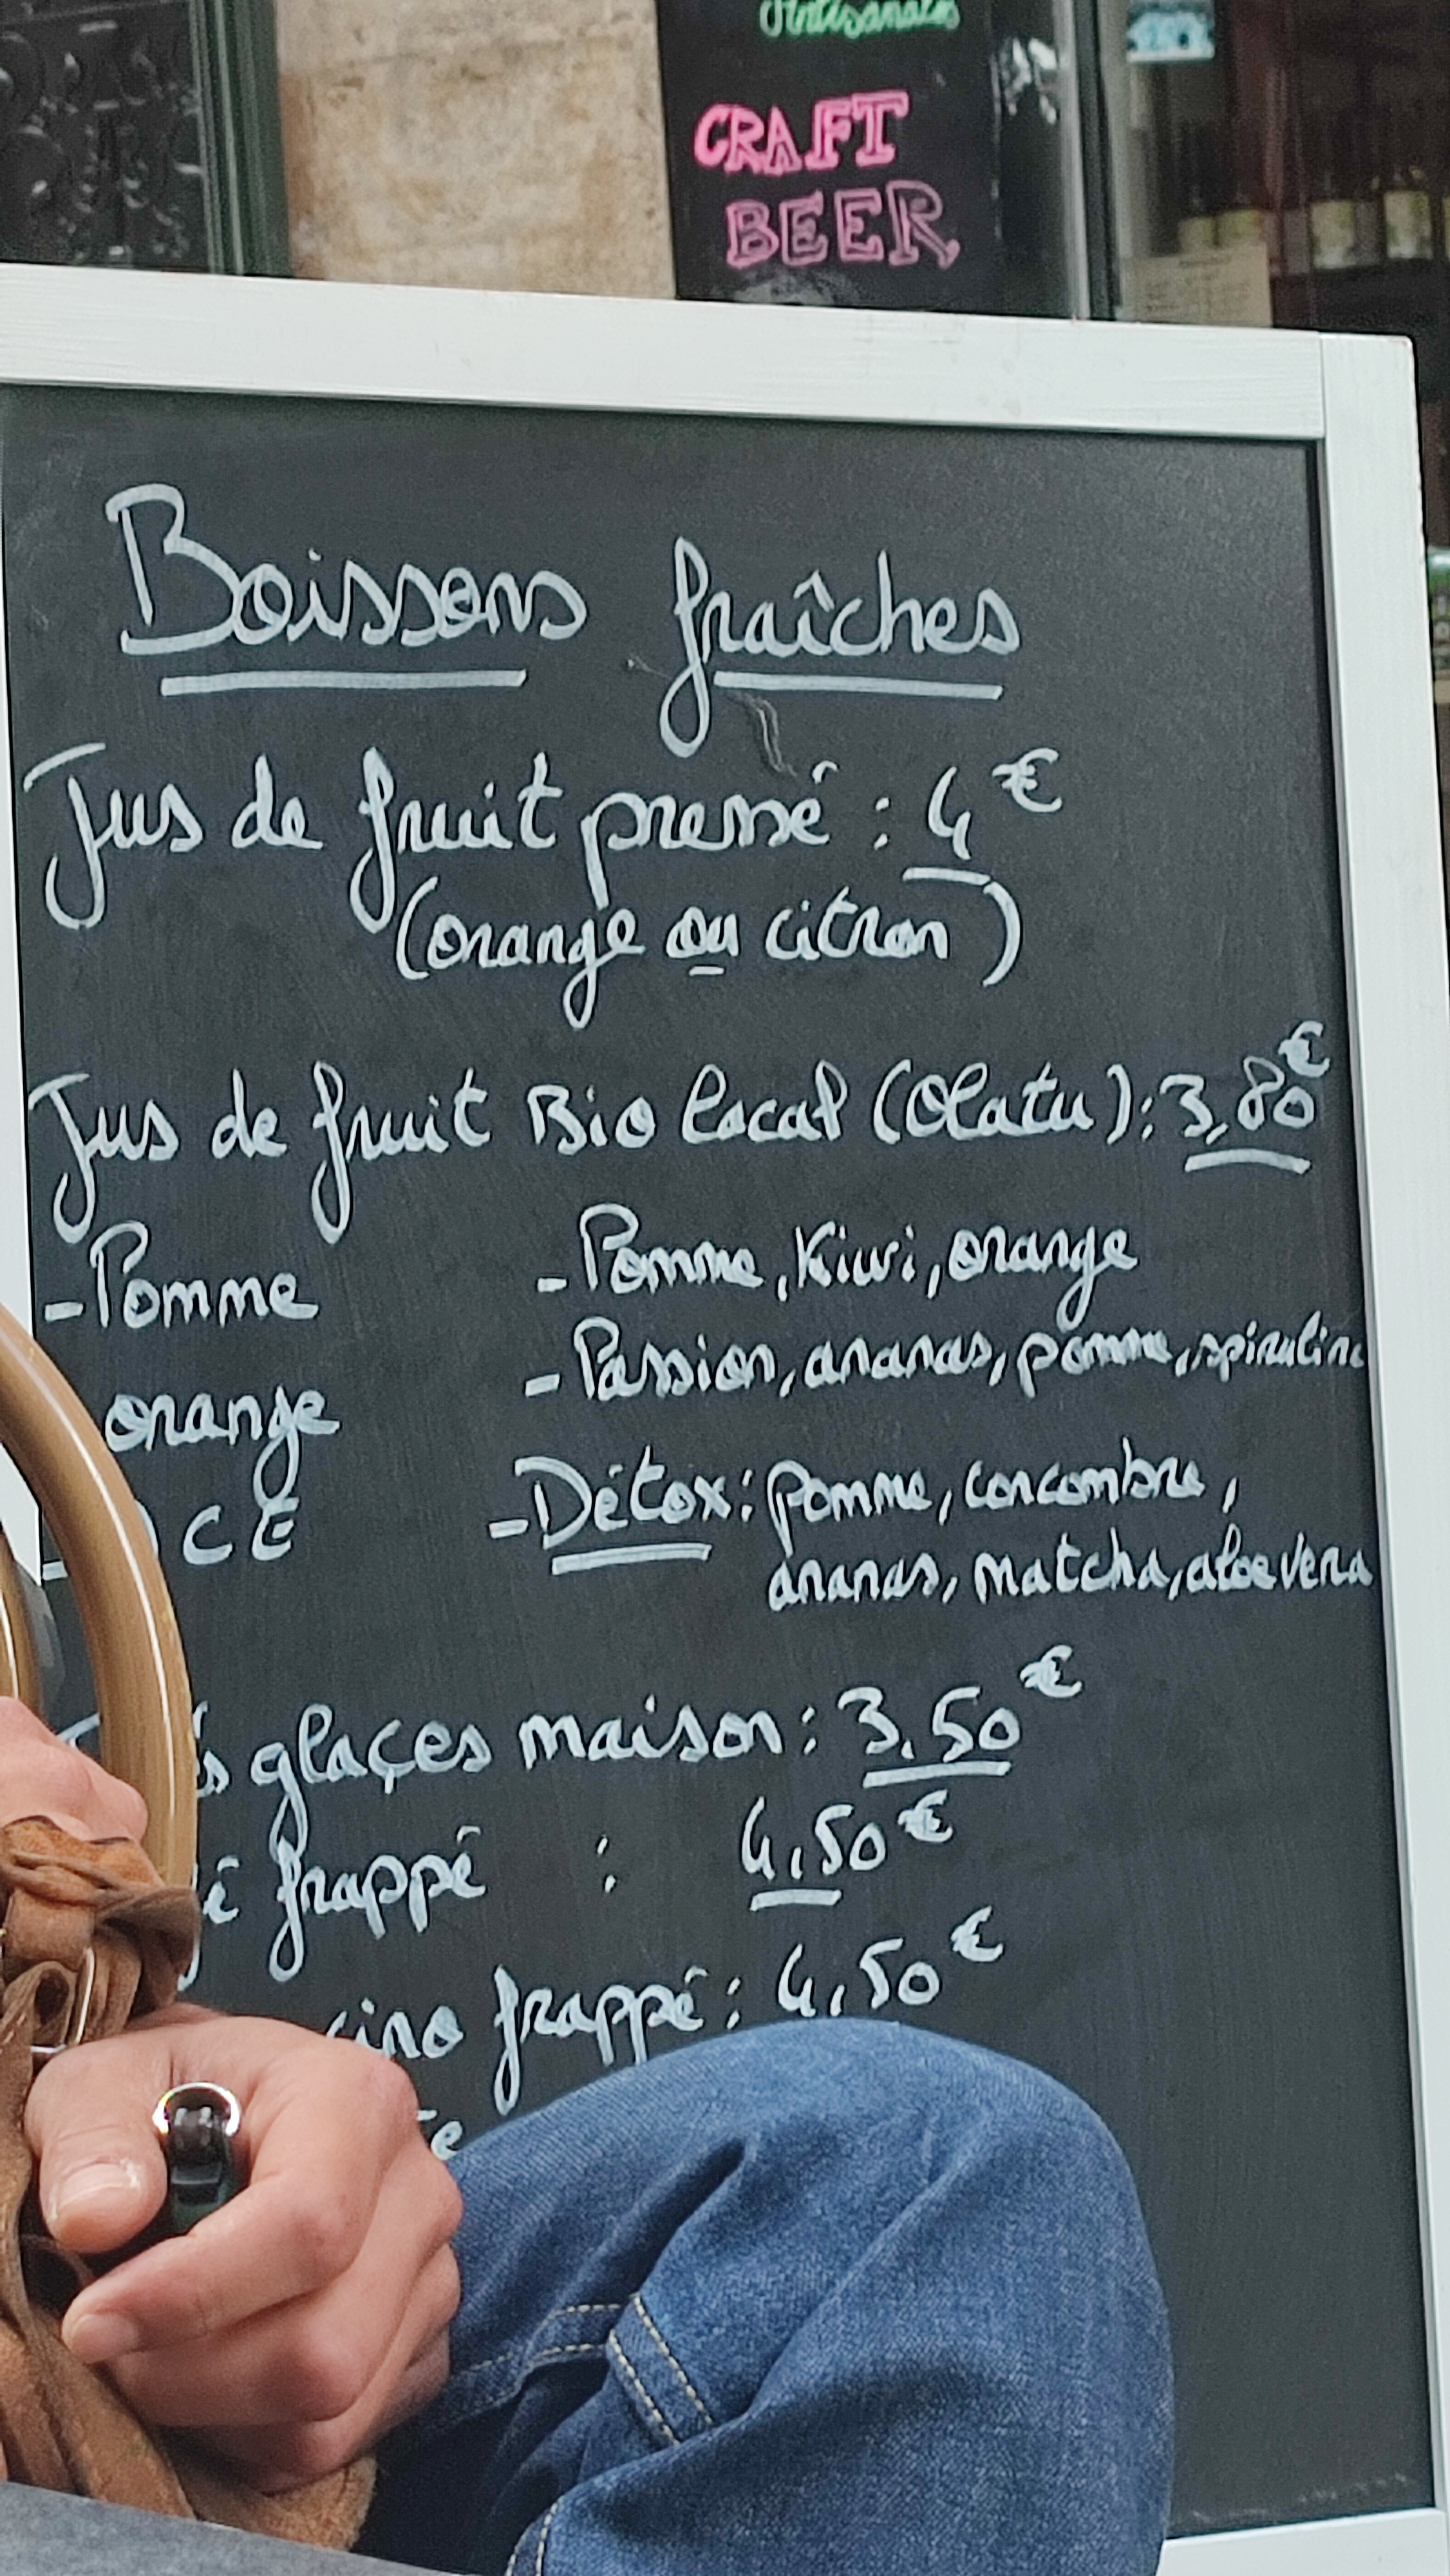 Artisanales
CRAFT
BEER
Boissons fraîches
Jus de fruit pressé : 4€
(orange ou citron)
Jus de fruit Bio local (Olatu) : 3,80€
- Pomme
- Pomme, Kiwi, orange
orange
- Passion, ananas, pomme, spiruline
CE
- Détox : pomme, concombre,
ananas, matcha, aloe vera
glaçes maison : 3.50€
frappé : 4,50€
frappé : 4,50€